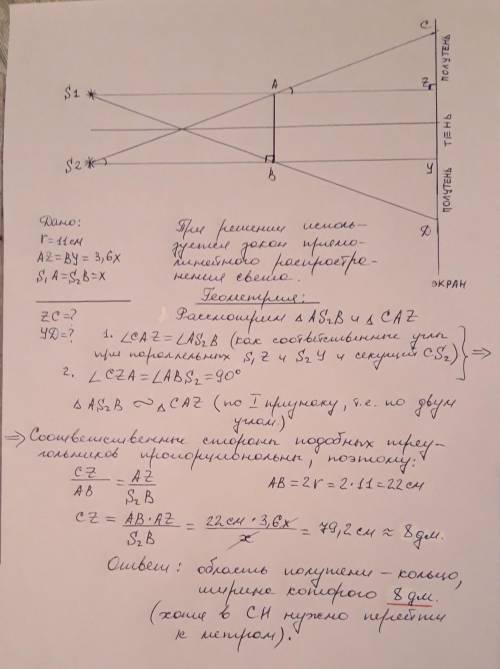 C
ПОЛУТЕНЬ
S1
A
Z
ТЕНЬ
S2
B
У
ПОЛУТЕНЬ
Д
ЭКРАН
Дано:
r = 11 см
AZ = BY = 3,6x
S₁A = S₂B = x
ZC = ?
УД = ?
При решении исполь-
зуется закон прямо-
линейного распростра-
нения света.
Геометрия:
Рассмотрим △ AS₂B и △ CAZ
1. ∠CAZ = ∠AS₂B (как соответственные углы
при параллельных S₁Z и S₂У и секущей CS₂)
2. ∠CZA = ∠ABS₂ = 90°
} ⇒
△ AS₂B ~ △ CAZ (по I признаку, т.е. по двум
углам.)
⇒ Соответственные стороны подобных треу-
гольников пропорциональны, поэтому:
CZ/AB = AZ/S₂B AB = 2r = 2·11 = 22 см
CZ = AB·AZ/S₂B = 22см·3,6x/x = 79,2 см ≈ 8 дм.
Ответ: область полутени – кольцо,
ширина которого 8 дм.
(хотя в СИ нужно перейти
к метрам).